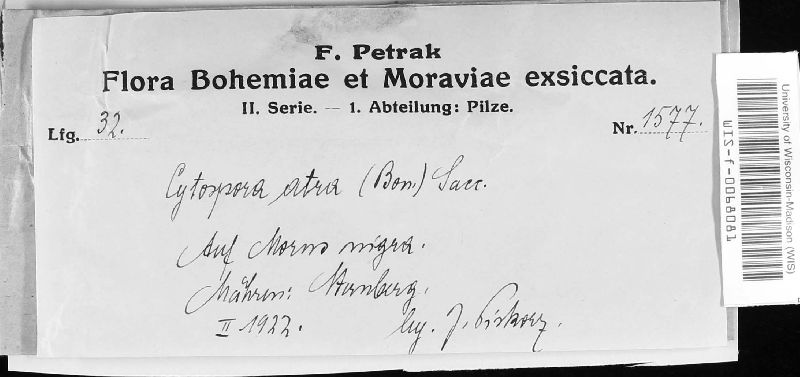 F. Petrak
Flora Bohemiae et Moraviae exsiccata.
II. Serie. — 1. Abteilung: Pilze.
Lfg. 32.
Nr. 1577.
Cytospora atra (Bon.) Sacc.
Auf Morus nigra.
Mähren: Sternberg.
II 1922.
leg. J. Piskorz.
University of Wisconsin-Madison (WIS)
WIS-f-0068081